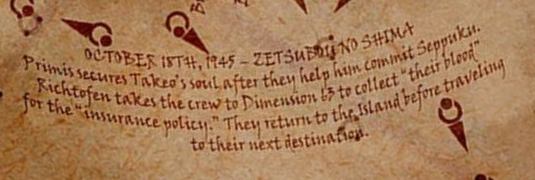 OCTOBER 18TH, 1945 – ZETSUBOU NO SHIMA
Primis secures Takeo's soul after they help him commit Seppuku.
Richtofen takes the crew to Dimension 63 to collect "their blood"
for the "insurance policy." They return to the Island before traveling
to their next destination.